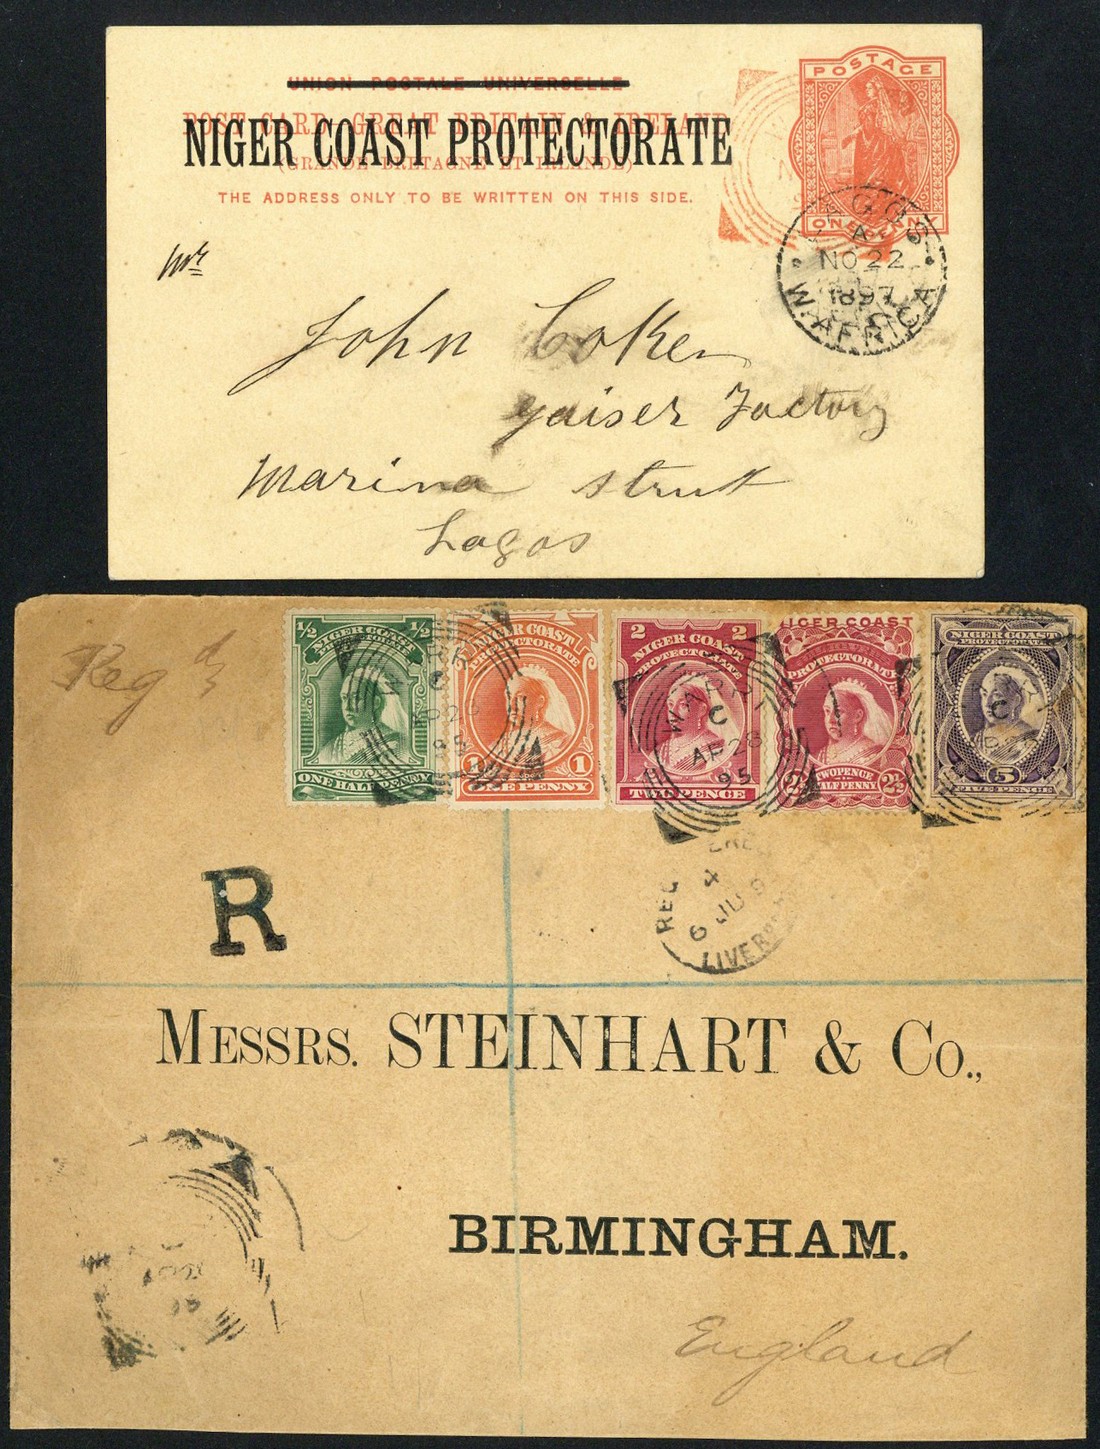 UNION POSTALE UNIVERSELLE
POST CARD GREAT BRITAIN & IRELAND
NIGER COAST PROTECTORATE
(GRANDE BRETAGNE ET IRLANDE)
THE ADDRESS ONLY TO BE WRITTEN ON THIS SIDE.
POSTAGE
ONE PENNY
LAGOS
A
NO 22
1897
W. AFRICA
Mr
John Coker
gaiser Factory
Marina Street
Lagos
Regd
½ ½
NIGER COAST
PROTECTORATE
ONE HALF PENNY
NIGER COAST
PROTECTORATE
1 1
ONE PENNY
2 2
NIGER COAST
PROTECTORATE
TWO PENCE
NIGER COAST
PROTECTORATE
2½ 2½
TWOPENCE
HALFPENNY
NIGER COAST
PROTECTORATE
5
FIVE PENCE
WARRI
C
AP 28
95
LIVERPOOL
R
MESSRS. STEINHART & Co.,
BIRMINGHAM.
England